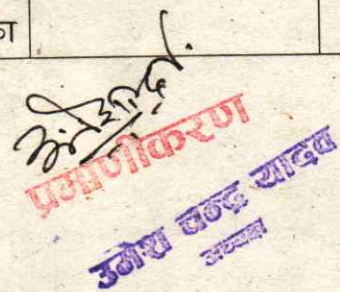 का
प्रमाणीकरण
उमेश चन्द्र यादव
अध्यक्ष